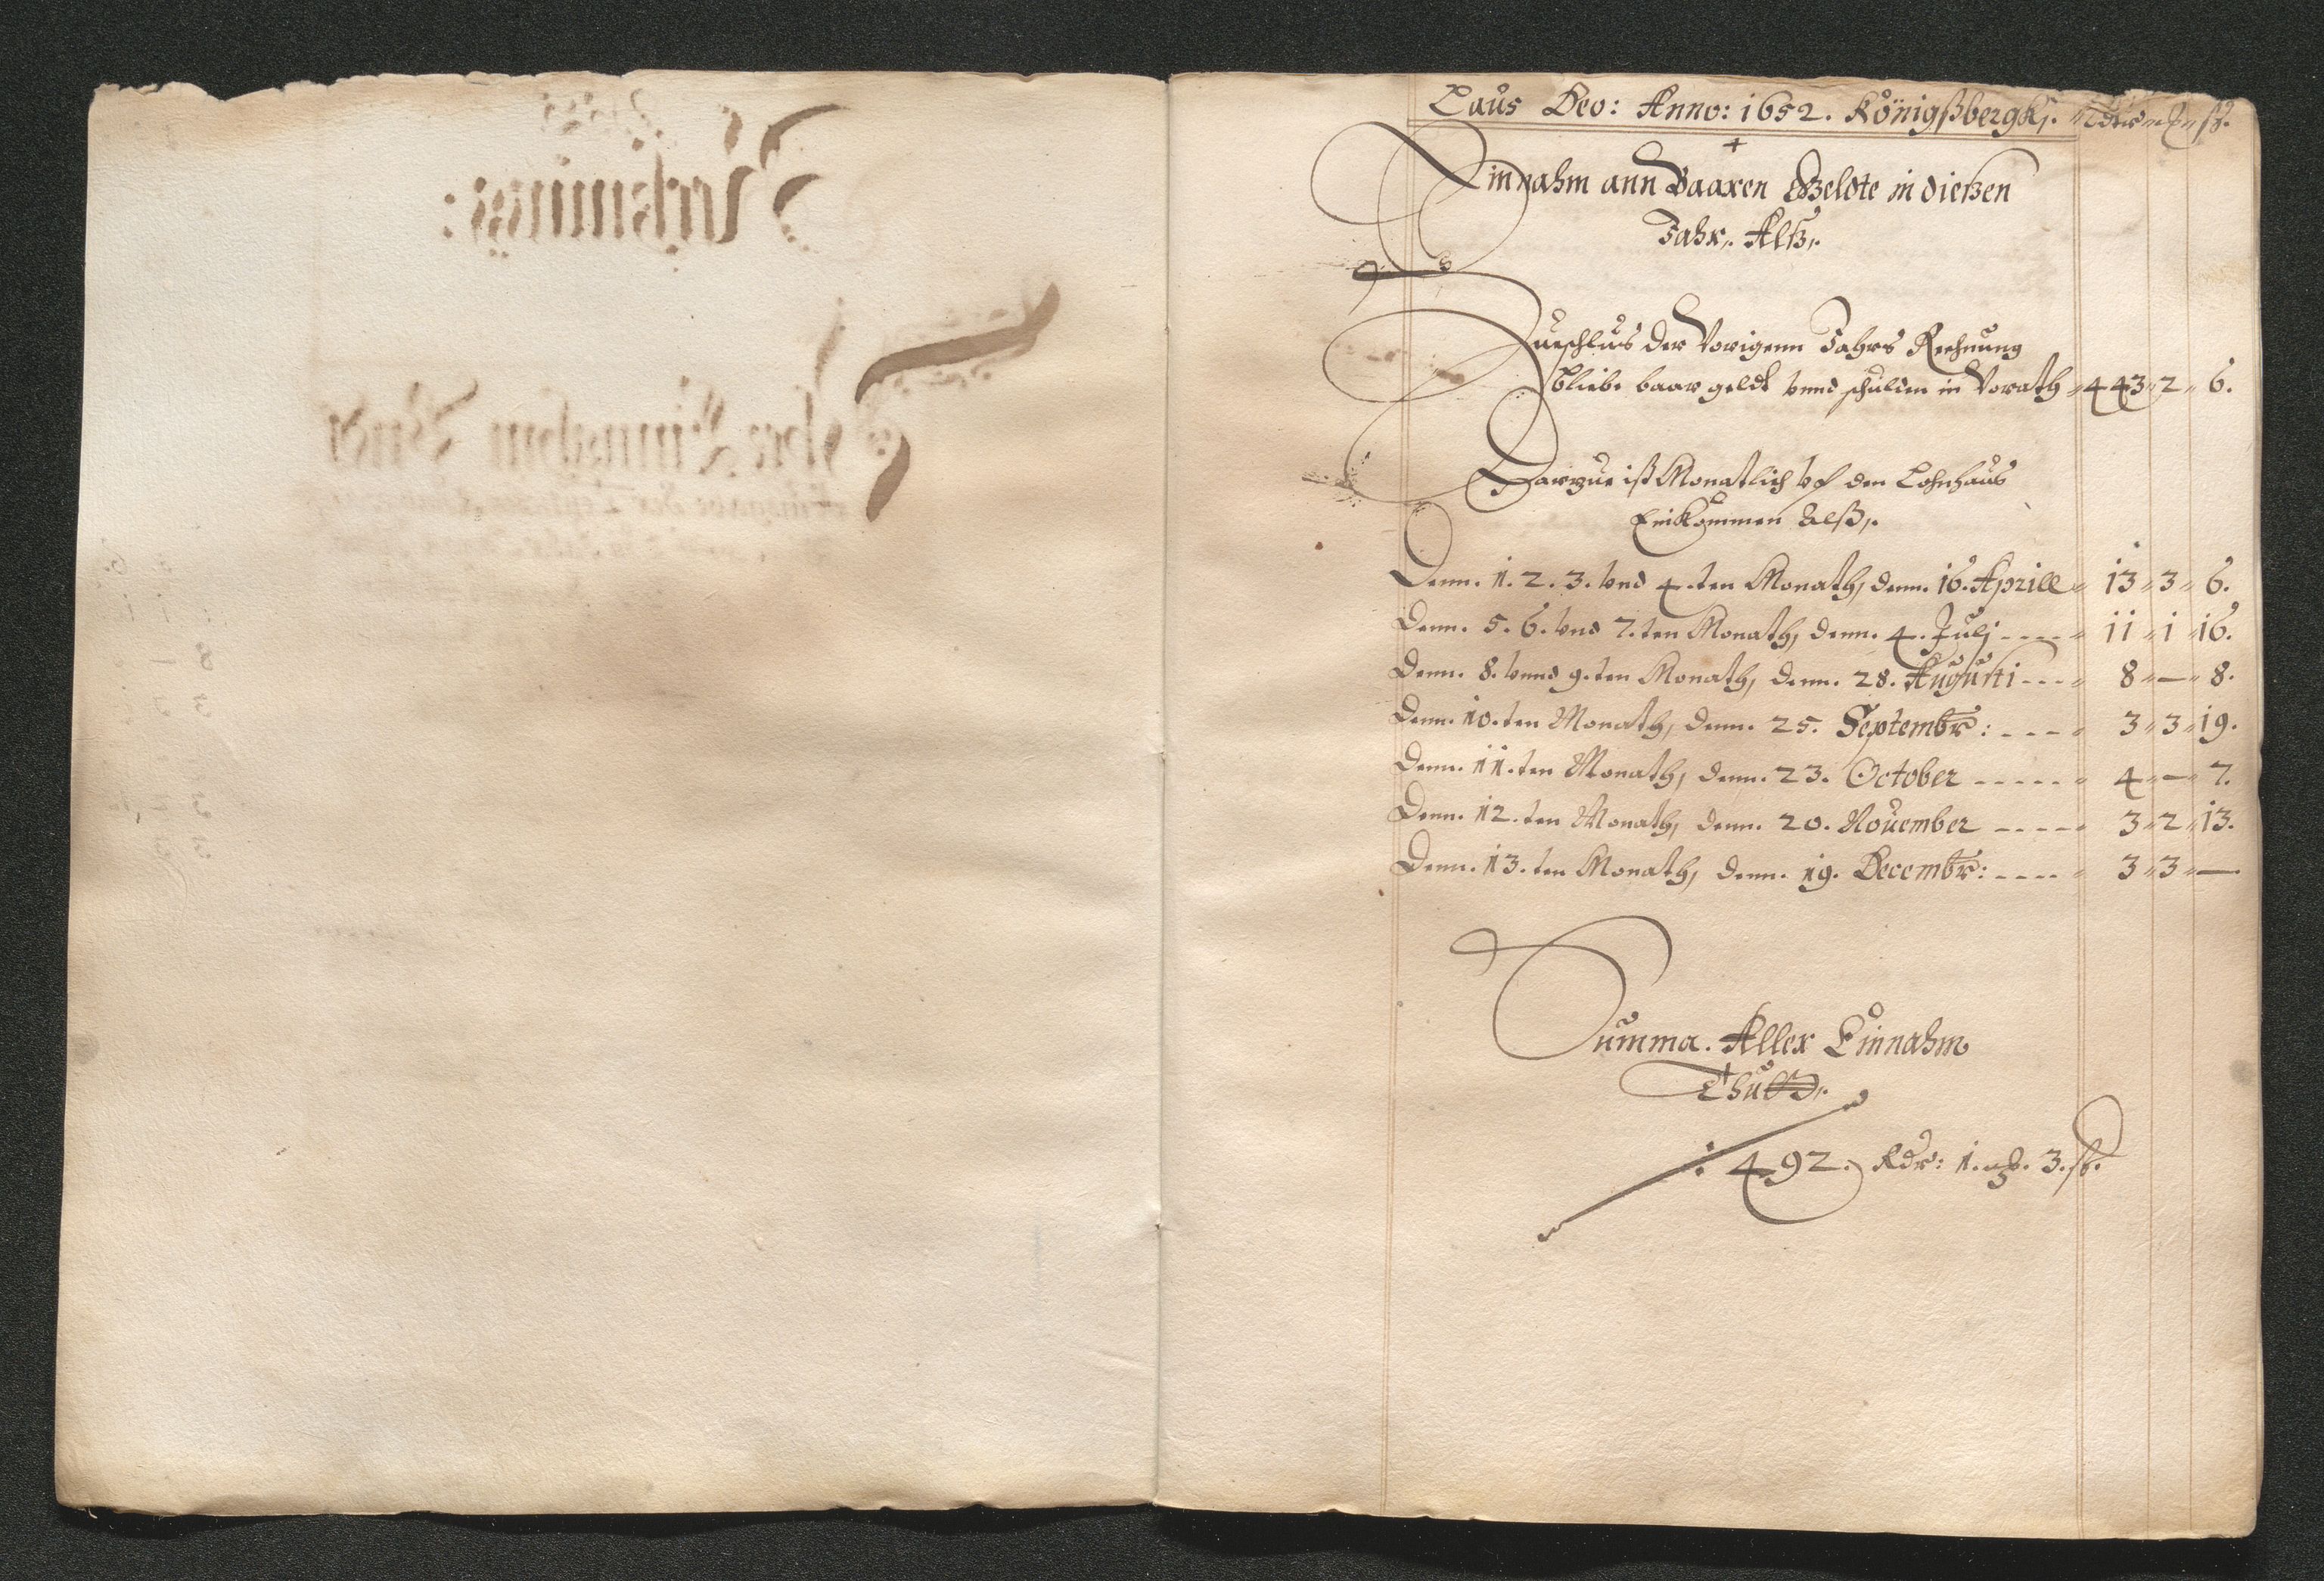 Laus Deo: Anno: 1652. Königßbergk,.
Einnahm ann Baaren Geldte in dießen
Jahr,. Alß,.
Zueschlus der Vorigenn Jahrs Rechnung
bliebe baar geldt vnnd schulden in Vorath 443 2 6.
Darzue ist Monatlich vf den Lohnhaus
Einkommen Alß,.
Denn. 1. 2. 3. vnd 4.ten Monath, denn. 16. Aprill 13 3 6.
Denn. 5. 6. vnd 7.ten Monath, denn. 4. Julj ---- 11 1 16.
Denn. 8. vnnd 9.ten Monath, denn. 28. Augusti --- 8 — 8.
Denn. 10.ten Monath, denn. 25. Septembr: ---- 3 3 19.
Denn. 11.ten Monath, denn. 23. October ----- 4 — 7.
Denn. 12.ten Monath, denn. 20. November ----- 3 2 13.
Denn. 13.ten Monath, denn. 19. Decembr: ---- 3 3 —
Summa. Aller Einnahm
Thutt,.
: 492. Rdr: 1. 3. ß.